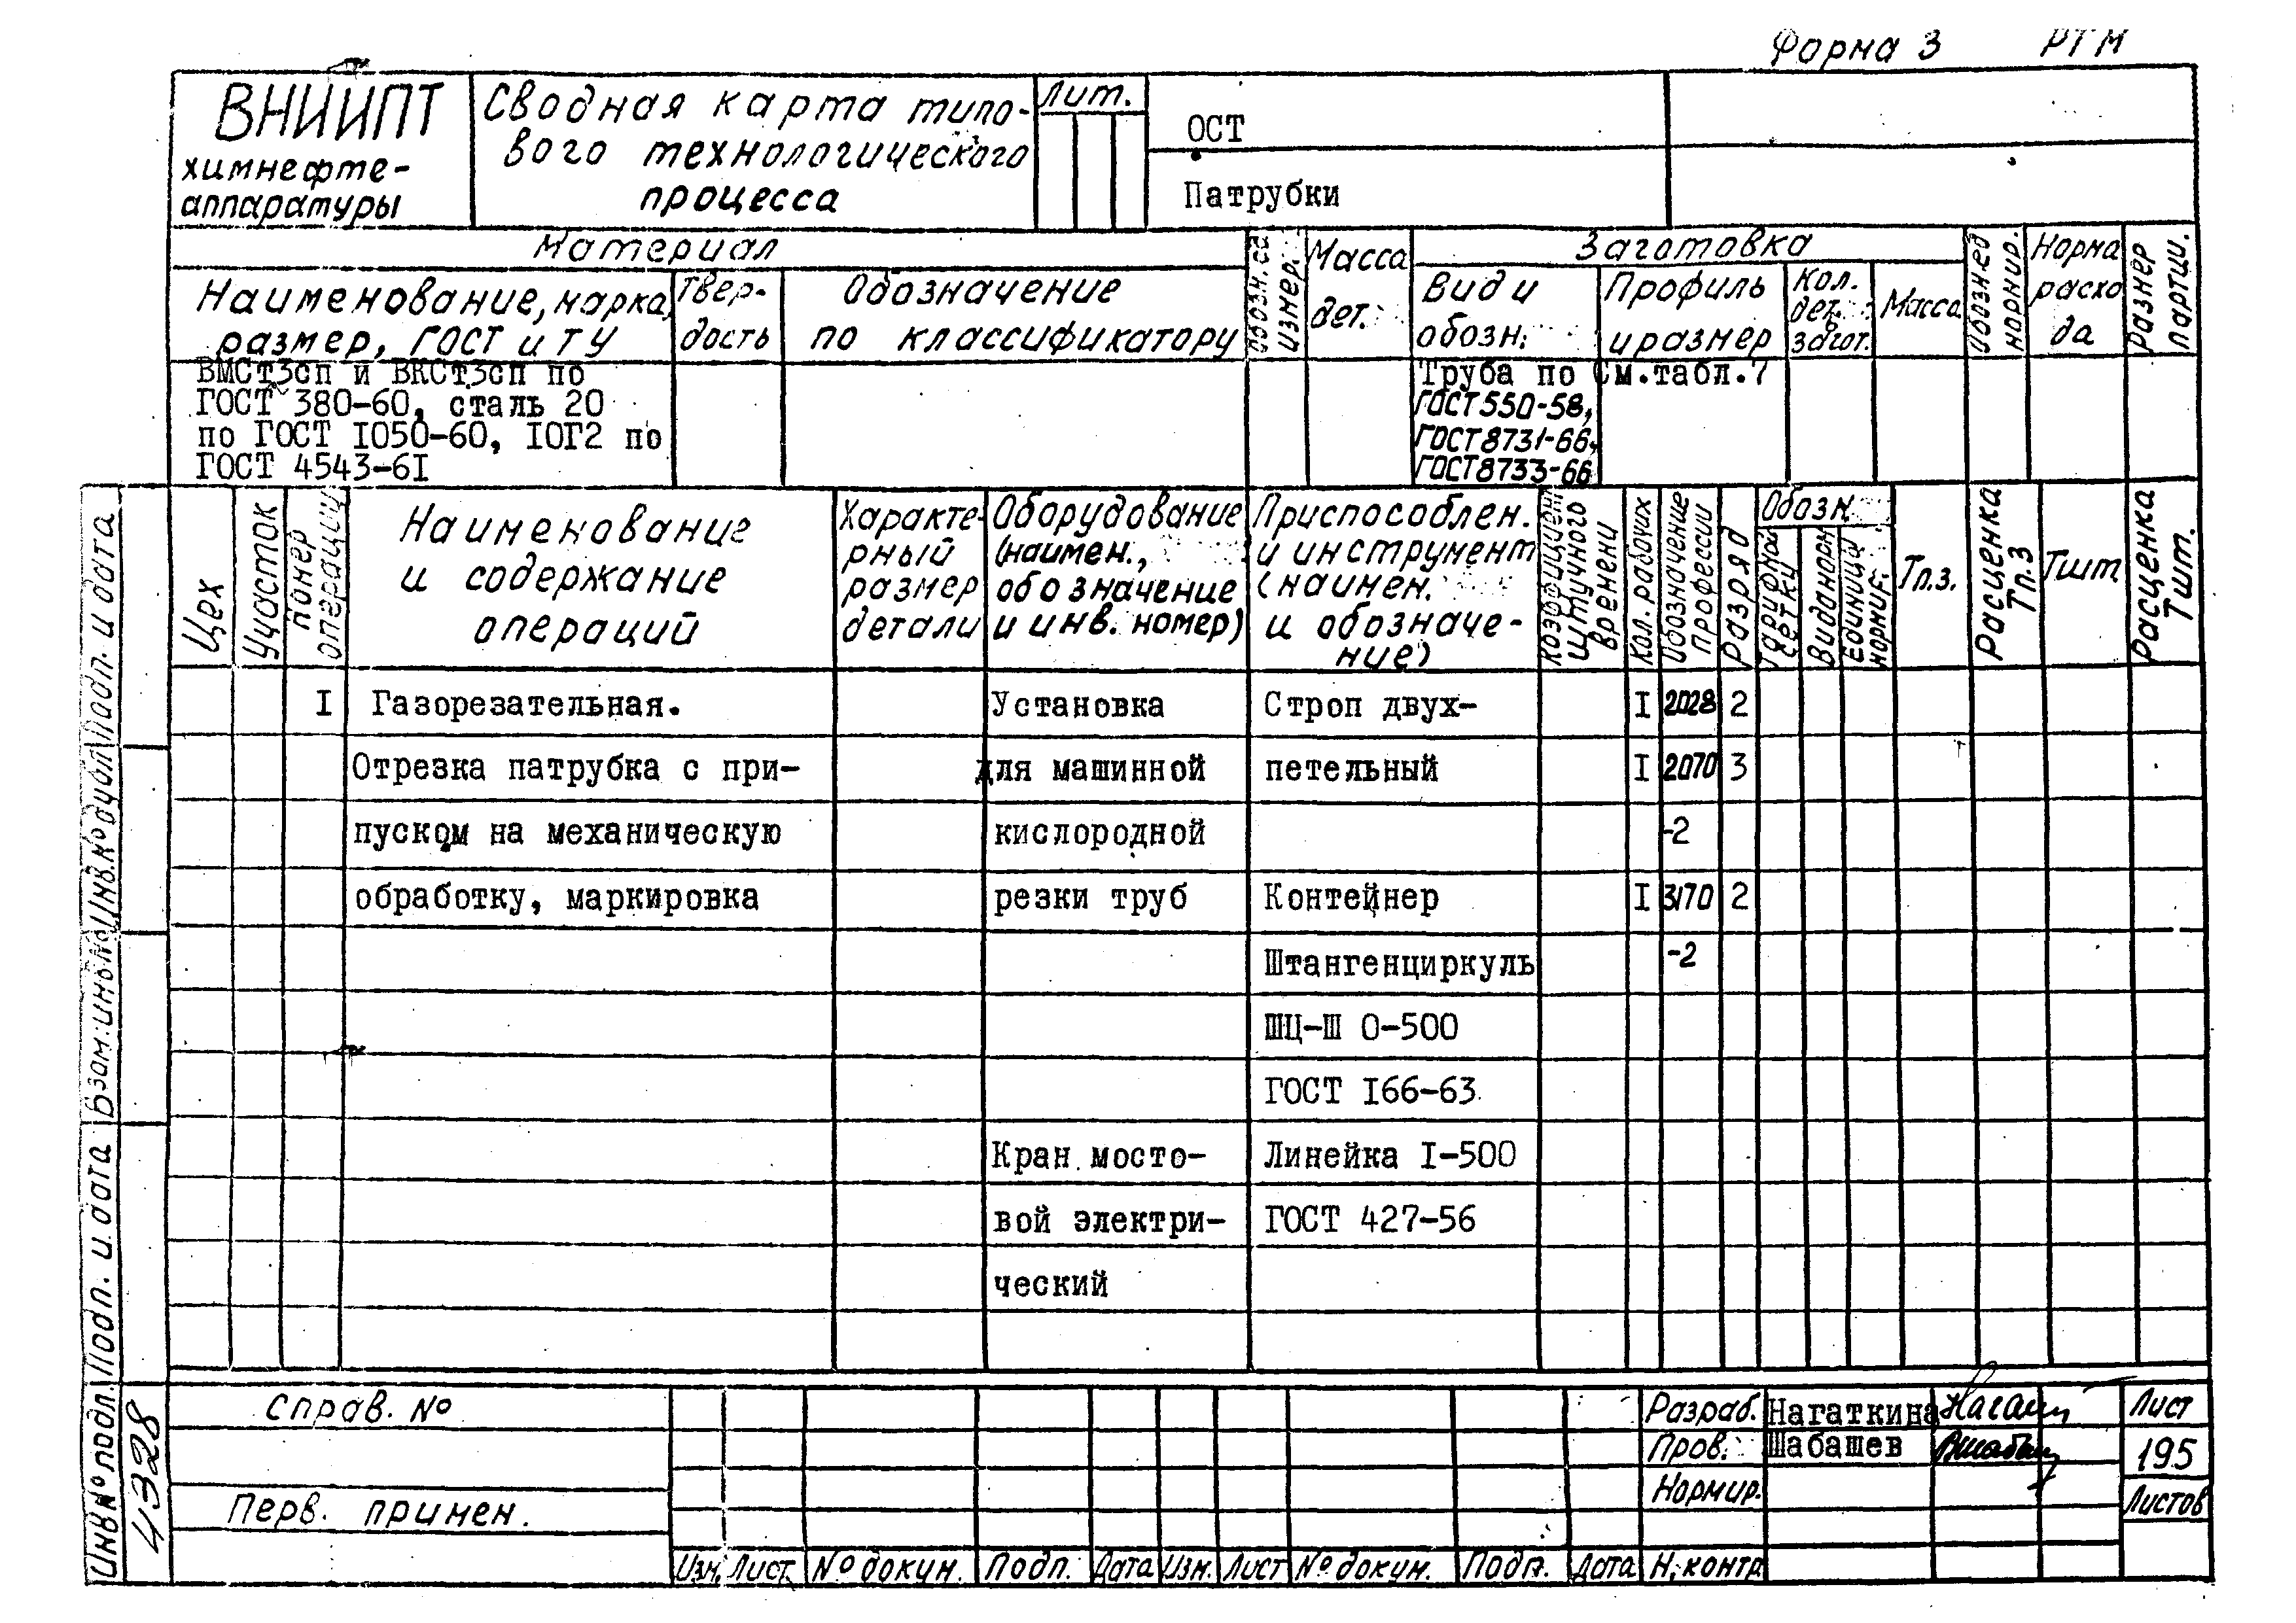 Форма 3 РТМ
ВНИИПТ
химнефте-
аппаратуры
Сводная карта типо-
вого технологического
процесса
Лит.
ОСТ
Патрубки
Материал
Наименование, марка,
размер, ГОСТ и ТУ
Твер-
дость
Обозначение
по классификатору
Обозн. ед.
измер.
Масса
дет.
Заготовка
Вид и
обозн.
Профиль
и размер
Кол.
дет. в
загот.
Масса
Обозн ед
нормир.
Норма
расхо
да
Размер
партии.
ВМСт3сп и ВКСт3сп по
ГОСТ 380-60, сталь 20
по ГОСТ I050-60, I0Г2 по
ГОСТ 4543-6I
Труба по
ГОСТ 550-58,
ГОСТ 8731-66,
ГОСТ 8733-66
См.табл.7
Цех
Участок
Номер
операции
Наименование
и содержание
операций
Характе-
рный
размер
детали
Оборудование
(наимен.,
обозначение
и инв. номер)
Приспособлен.
и инструмент
(наимен.
и обозначе-
ние)
Коэффициент
штучного
времени
Кол. рабочих
Обозначение
профессии
Разряд
Обозн.
Тарифной
сетки
Вида норм
Единицы
нормир.
Тп.з.
Расценка
Тп.з
Тшт
Расценка
Тшт.
I Газорезательная. Установка Строп двух- I 2028 2
Отрезка патрубка с при- для машинной петельный I 2070 3
пуском на механическую кислородной -2
обработку, маркировка резки труб Контейнер I 3170 2
Штангенциркуль -2
ШЦ-Ш 0-500
ГОСТ I66-63
Кран мосто- Линейка I-500
вой электри- ГОСТ 427-56
ческий
Инв № подл. Подп. и дата Взам. инв № Инв. № дубл Подп. и дата
4328
Справ. №
Перв. примен.
Изм. Лист № докум. Подп. Дата Изм. Лист № докум. Подп. Дата
Разраб. Нагаткина
Пров. Шабашев
Нормир.
Н. контр
Лист
195
Листов